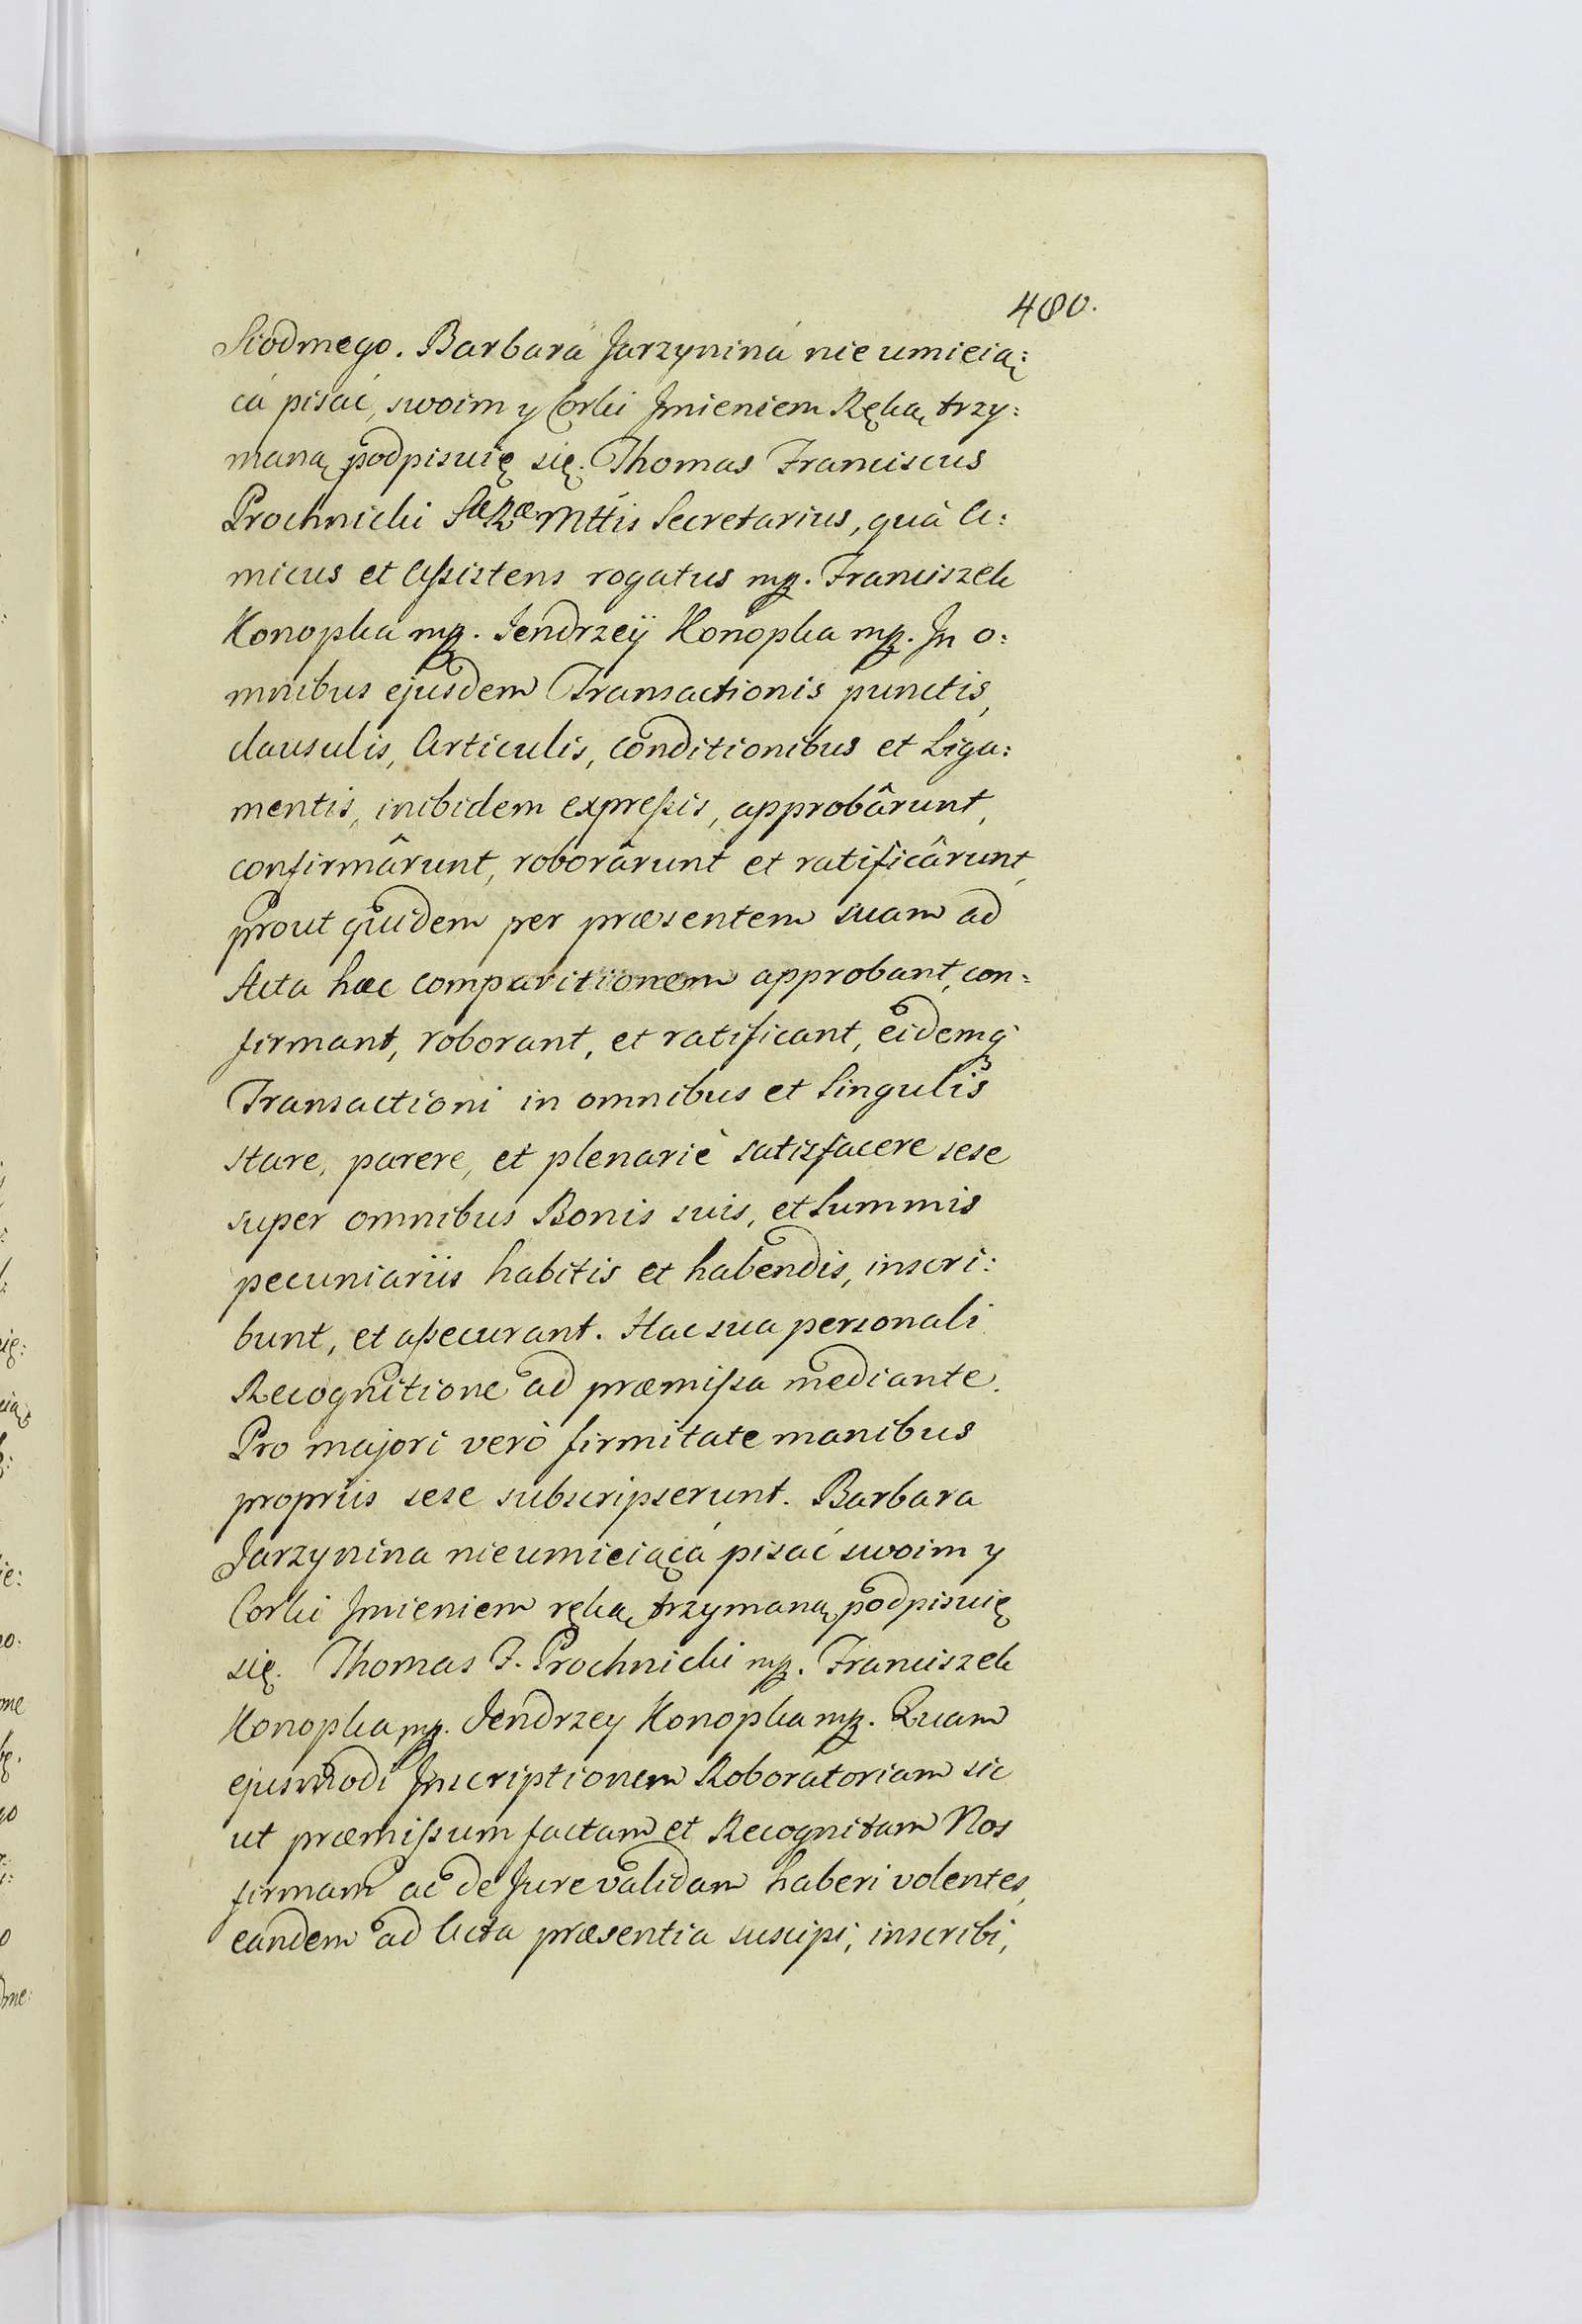 480.
Siodmego. Barbara Jarzynina nie umieią:
cá pisać, swoim y Corki Jmieniem Ręką trzy:
maną podpisuię się. Thomas Franciscus
Prochnicki Sæ Ræ Mttis Secretarius, quà A:
micus et Aſsistens rogatus mp. Franciszek
Konopka mp. Jendrzeÿ Konopka mp. Jn o:
mnibus ejusdem Transactionis punctis,
clausulis, Articulis, Conditionibus et Liga:
mentis, inibidem expreſsis, approbârunt,
confirmârunt, roborârunt et ratificârunt,
prout quidem per præsentem suam ad
Acta hæc comparitionem approbant, con:
firmant, roborant, et ratificant, eidemq3
Transactioni in omnibus et Singulis
stare, parere, et plenariè satisfacere sese
super omnibus Bonis suis, et Summis
pecuniariis habitis et habendis, inscri:
bunt, et aſsecurant. Hac sua personali
Recognitione ad præmiſsa mediante.
Pro majori verò firmitate manibus
propriis sese subscripserunt. Barbara
Jarzynina nie umieiącá pisać swoim y
Corki Jmieniem ręką trzymaną podpisuię
się. Thomas F. Prochnicki mp. Franciszek
Konopka mp. Jendrzey Konopka mp. Quam
ejusmodi Jnscriptionem Roboratoriam sic
ut præmiſsum factam et Recognitam Nos
firmam ac de Jure validam haberi volentes,
eandem ad Acta præsentia suscipi, inscribi,